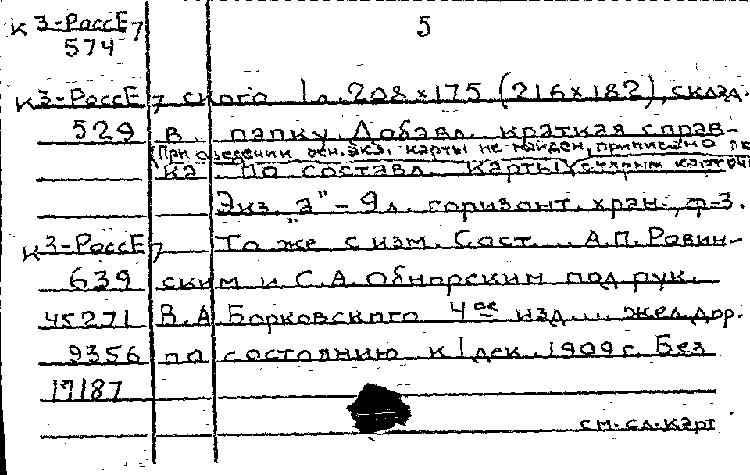 К 3-РоссЕ 7 5
574
К 3-РоссЕ 7 ского 1 л. 208×175 (216×182), склад.
529 в папку. Добавл. краткая справ-
(При сведении осн. экз. карты не найден, приписано
ка по составл. карты
Экз. "а" - 9 л. горизонт. хран., ф-3.
К 3-РоссЕ 7 То же с изм. Сост. А.П. Ровин-
639 ским и С.А. Обнорским под рук.
45271 В.А Борковского 4ое изд. ... жел.дор.
9356 по состоянию к 1 дек. 1909 г. Без
17187
см. сл. карт